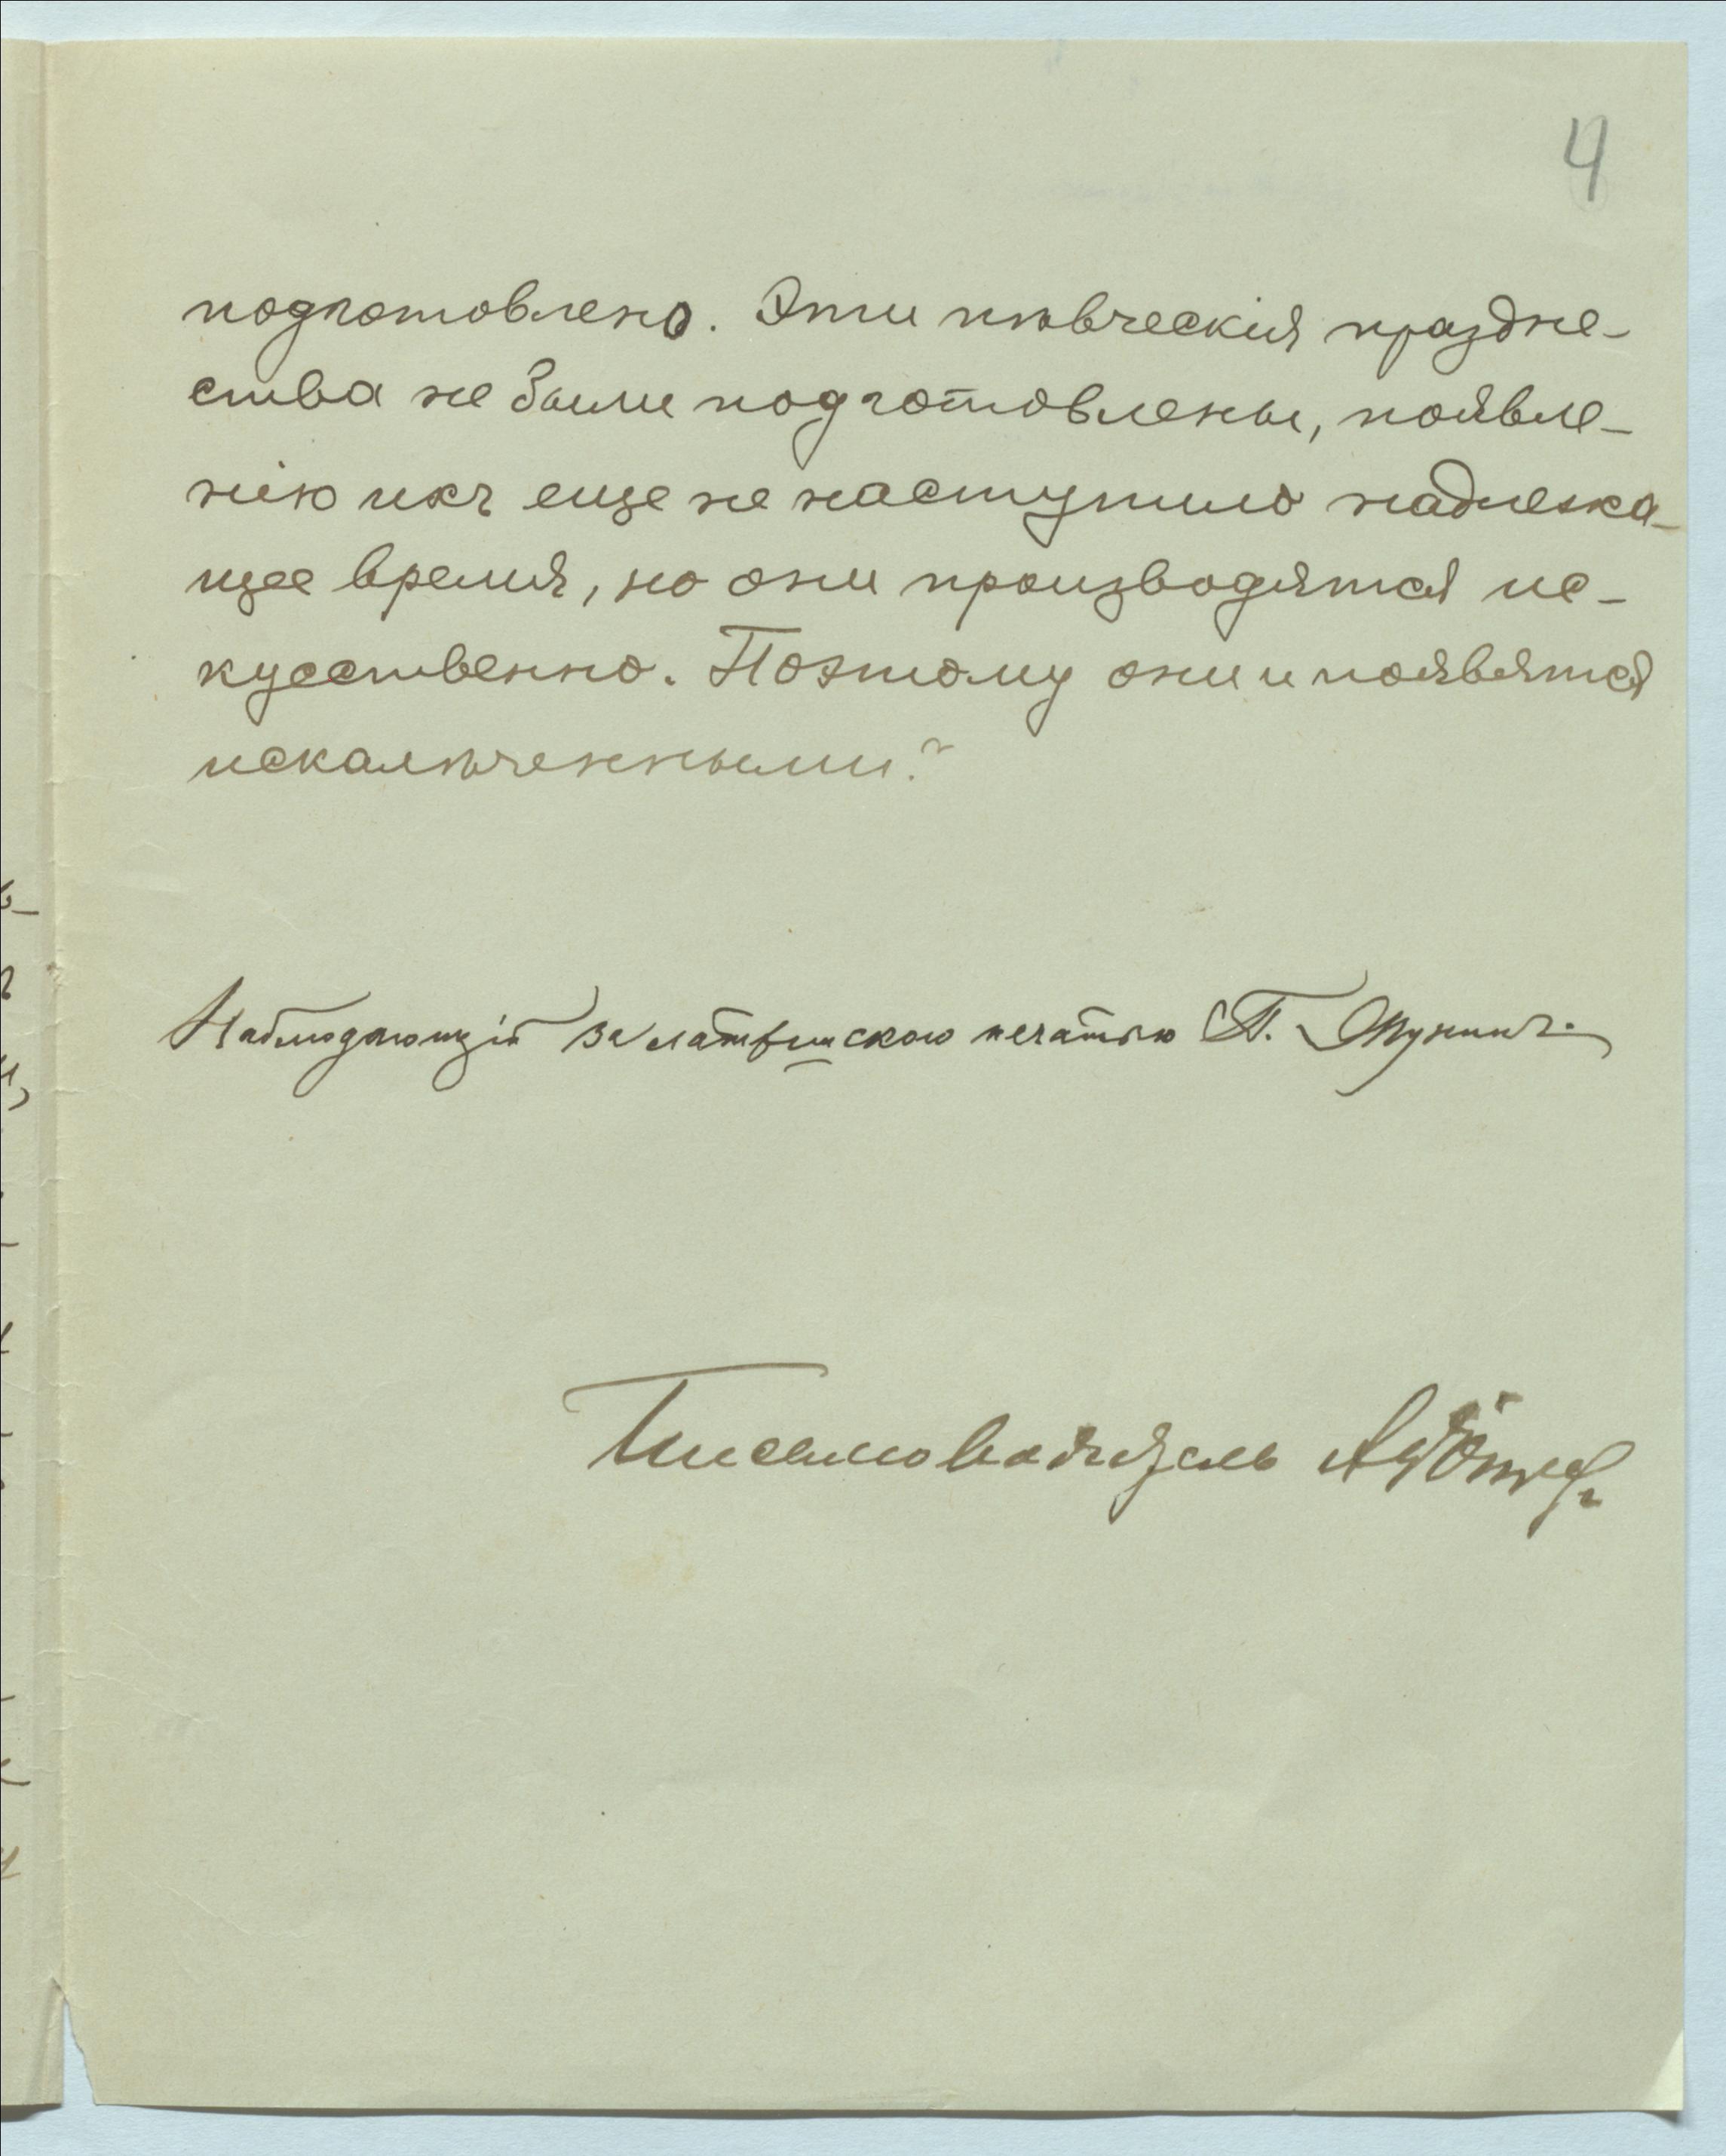 4
подготовлено. Эти пѣвческія праздне-
ства не были подготовлены, появле-
нію ихъ еще не наступило надлежа-
щее время, но они производятся ис-
кусственно. Поэтому они и появятся
искалѣченными."
Наблюдающій за латышскою печатью П.
Письмоводитель